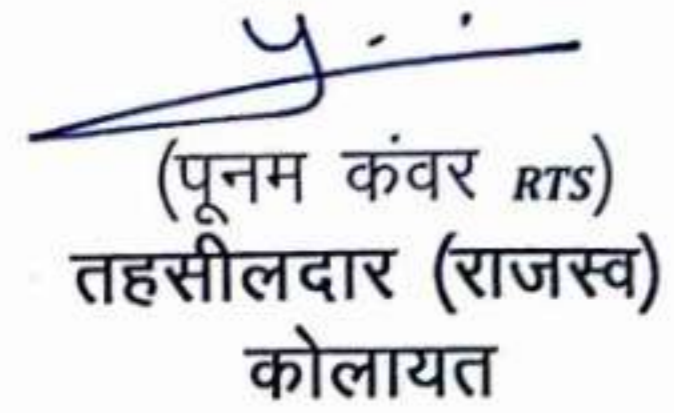 (पूनम कंवर RTS)
तहसीलदार (राजस्व)
कोलायत